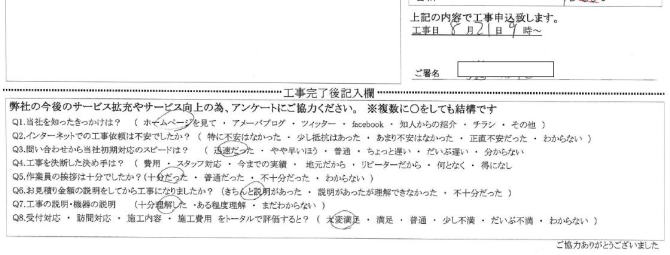 上記の内容で工事申込致します。
工事日 8 月 21 日 9 時～
ご署名
工事完了後記入欄
弊社の今後のサービス拡充やサービス向上の為、アンケートにご協力ください。 ※複数に〇をしても結構です
Q1.当社を知ったきっかけは？ （ ホームページを見て ・ アメーバブログ ・ ツィッター ・ facebook ・ 知人からの紹介 ・ チラシ ・ その他 ）
Q2.インターネットでの工事依頼は不安でしたか？ （ 特に不安はなかった ・ 少し抵抗はあった ・ あまり不安はなかった ・ 正直不安だった ・ わからない ）
Q3.問い合わせから当社初期対応のスピードは？ （ 迅速だった ・ やや早いほう ・ 普通 ・ ちょっと遅い ・ だいぶ遅い ・ 分からない
Q4.工事を決断した決め手は？ （ 費用 ・ スタッフ対応 ・ 今までの実績 ・ 地元だから ・ リピーターだから ・ 何となく ・ 得になし
Q5.作業員の挨拶は十分でしたか？（ 十分だった ・ 普通だった ・ 不十分だった ・ わからない ）
Q6.お見積り金額の説明をしてから工事になりましたか？ （きちんと説明があった ・ 説明があったが理解できなかった ・ 不十分だった ）
Q7.工事の説明・機器の説明 （十分理解した ・ある程度理解 ・ まだわからない ）
Q8.受付対応 ・ 訪問対応 ・ 施工内容 ・ 施工費用 をトータルで評価すると？ （ 大変満足 ・ 満足 ・ 普通 ・ 少し不満 ・ だいぶ不満 ・ わからない ）
ご協力ありがとうございました